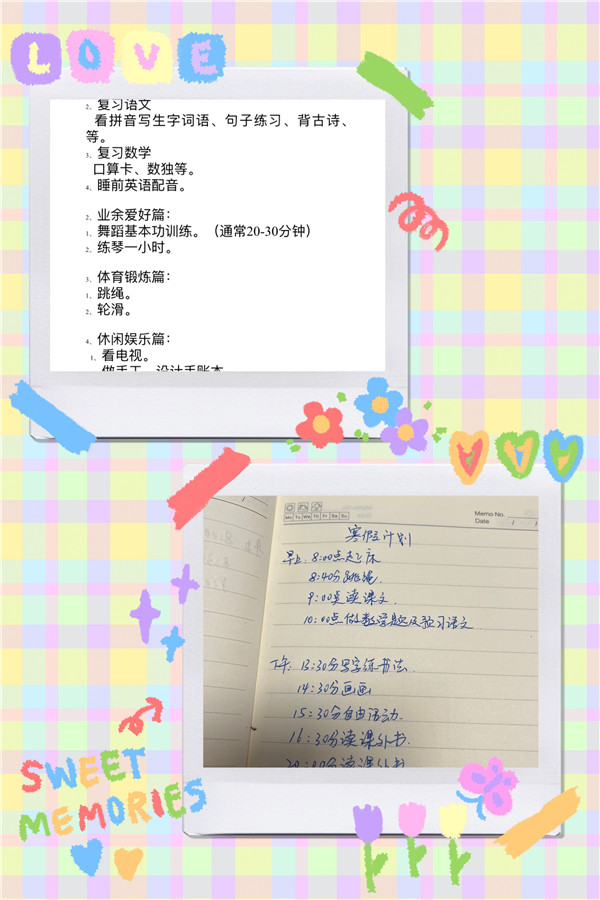 LOVE
2、复习语文
看拼音写生字词语、句子练习、背古诗、
等。
3、复习数学
口算卡、数独等。
4、睡前英语配音。
2、业余爱好篇：
1、舞蹈基本功训练。（通常20-30分钟）
2、练琴一小时。
3、体育锻炼篇：
1、跳绳。
2、轮滑。
4、休闲娱乐篇：
1、看电视。
做手工、设计手账本
Memo No.
Mo Tu We Th Fr Sa Su
Date / /
寒假计划
早上：8:00点起床
8:40分跳绳.
9:00点读课文.
10:00点做数学题及预习语文
下午：13:30分写字练书法.
14:30分画画
15:30分自由活动.
16:30分读课外书.
20:00分读课外书
SWEET
MEMORIES